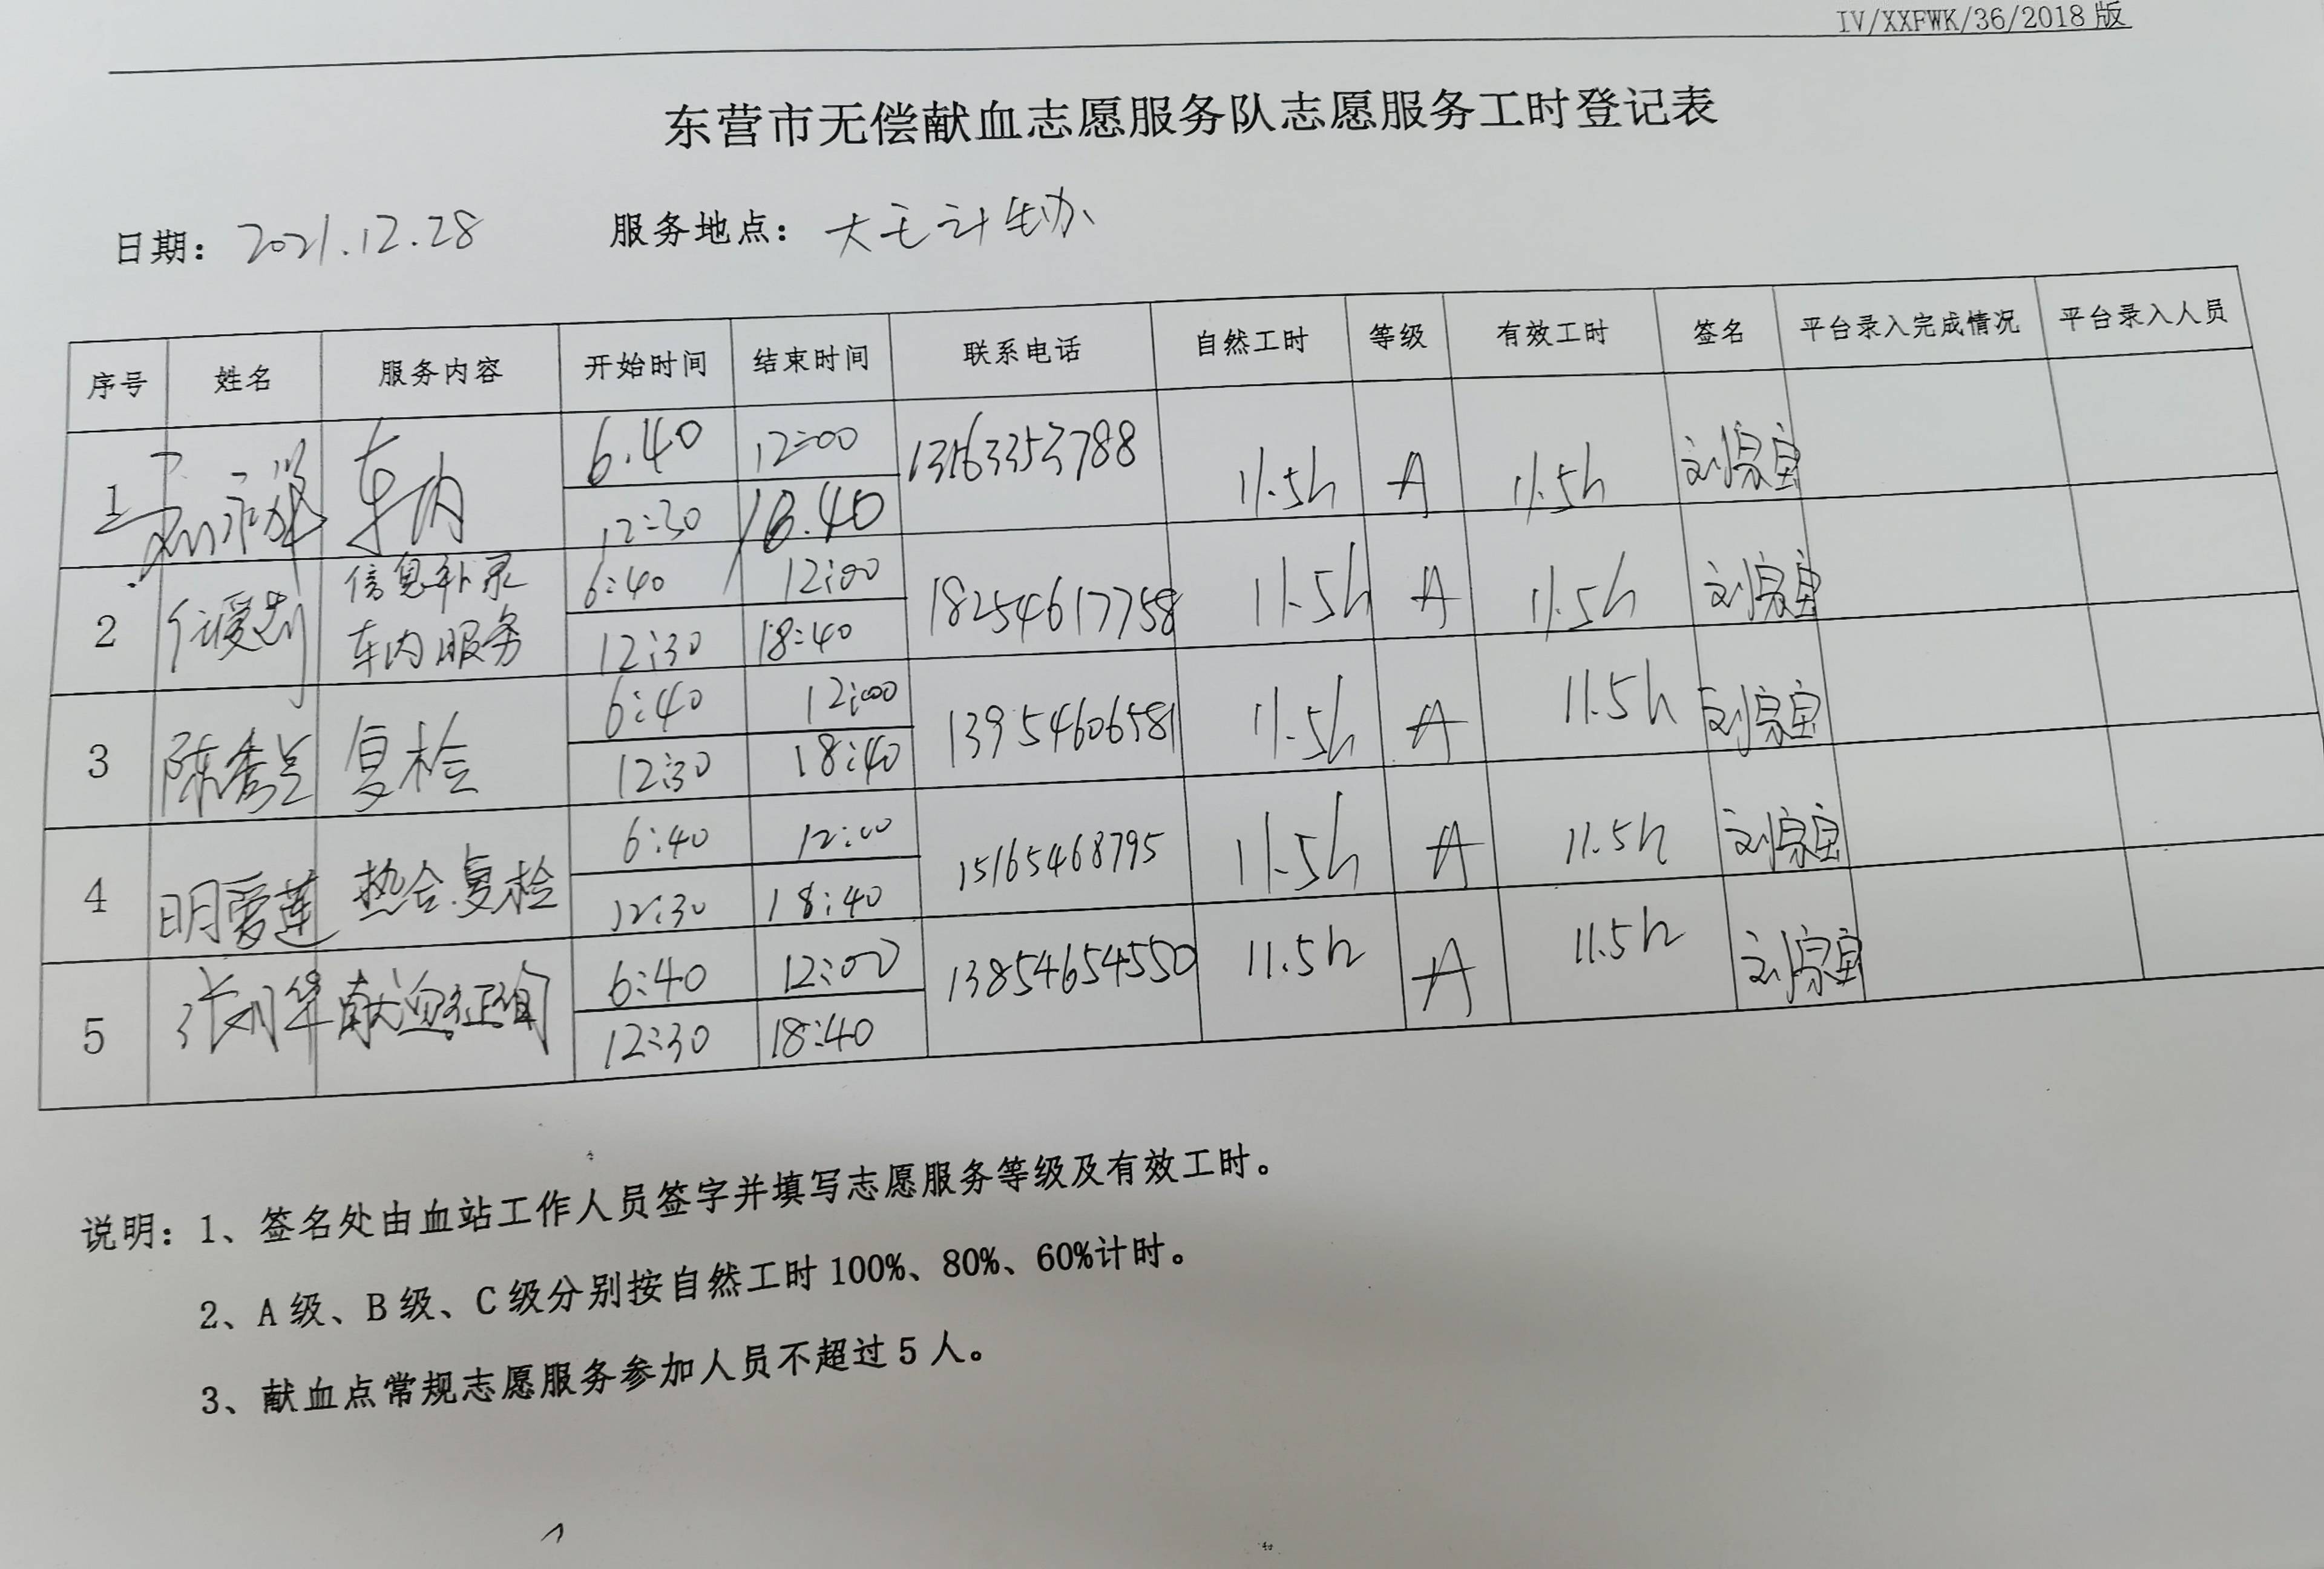 IV/XXFWK/36/2018版
东营市无偿献血志愿服务队志愿服务工时登记表
日期：2021.12.28 服务地点：大王计生办
序号 姓名 服务内容 开始时间 结束时间 联系电话 自然工时 等级 有效工时 签名 平台录入完成情况 平台录入人员
1 车内 6.40 12:00 11.5h A 11.5h
12:30 18.40
2 信息补录 6:40 12:00 18254617758 11.5h A 11.5h
车内服务 12:30 18:40
3 复检 6:40 12:00 13954606581 11.5h A 11.5h
12:30 18:40
4 明爱莲 热合.复检 6:40 12:00 15165468795 11.5h A 11.5h
12:30 18:40
5 6:40 12:00 13854654550 11.5h A 11.5h
12:30 18:40
说明：1、签名处由血站工作人员签字并填写志愿服务等级及有效工时。
2、A级、B级、C级分别按自然工时100%、80%、60%计时。
3、献血点常规志愿服务参加人员不超过5人。